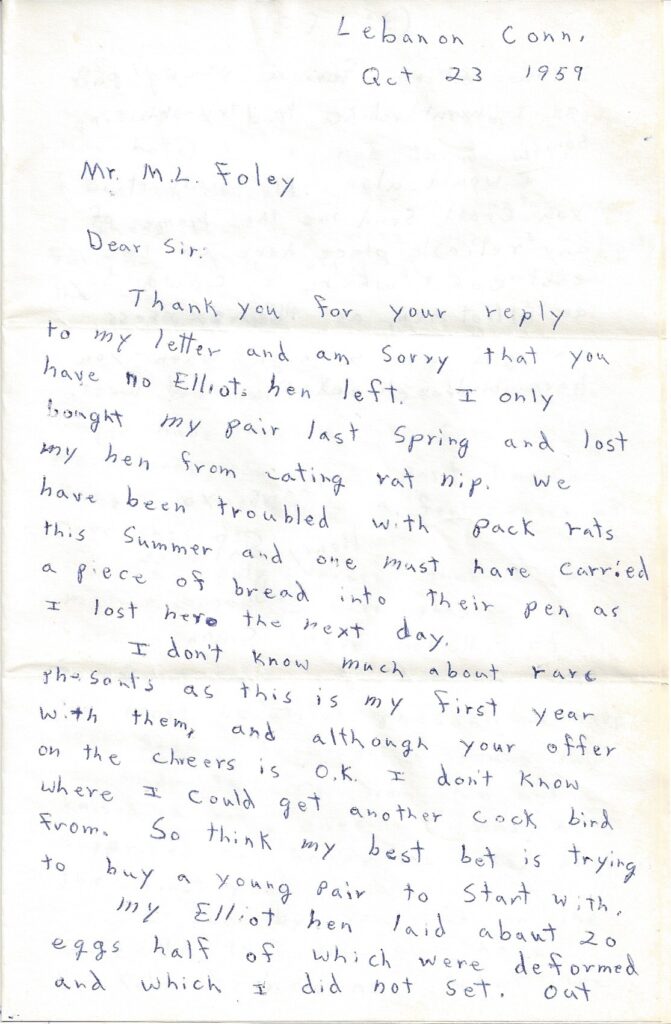 Lebanon Conn.
Oct 23 1959
Mr. M.L. Foley
Dear Sir:
Thank you for your reply
to my letter and am Sorry that you
have no Elliots hen left. I only
bought my pair last Spring and lost
my hen from eating rat nip. We
have been troubled with pack rats
this Summer and one must have carried
a piece of bread into their pen as
I lost here the next day.
I don't know much about rare
phesants as this is my first year
with them, and although your offer
on the cheers is O.K. I don't know
where I could get another cock bird
from. So think my best bet is trying
to buy a young pair to Start with.
My Elliot hen laid about 20
eggs half of which were deformed
and which I did not set. Out